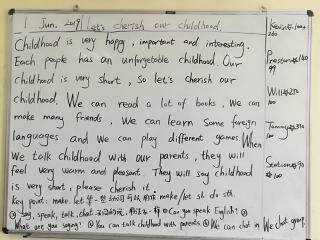 1 Jun. 2019 Let's cherish our childhood.
Childhood is very happy, important and interesting.
Each people has an unforgetable childhood. Our
childhood is very short, So let's cherish our
childhood. We can read a lot of books, we can
make many friends. We can learn some foreign
languages and we can play different games. When
we talk childhood with our parents, they will
feel very warm and pleasant. They will say childhood
is very short, please cherish it.
Key point: make. let make/let sb do sth.
say, speak, talk, chat Can you speak English?
What are you saying? You can talk childhood with parents We can chat in We chat group.
Kevin
260
Preston
99
Will
100
Tommy
100
Santiago
100